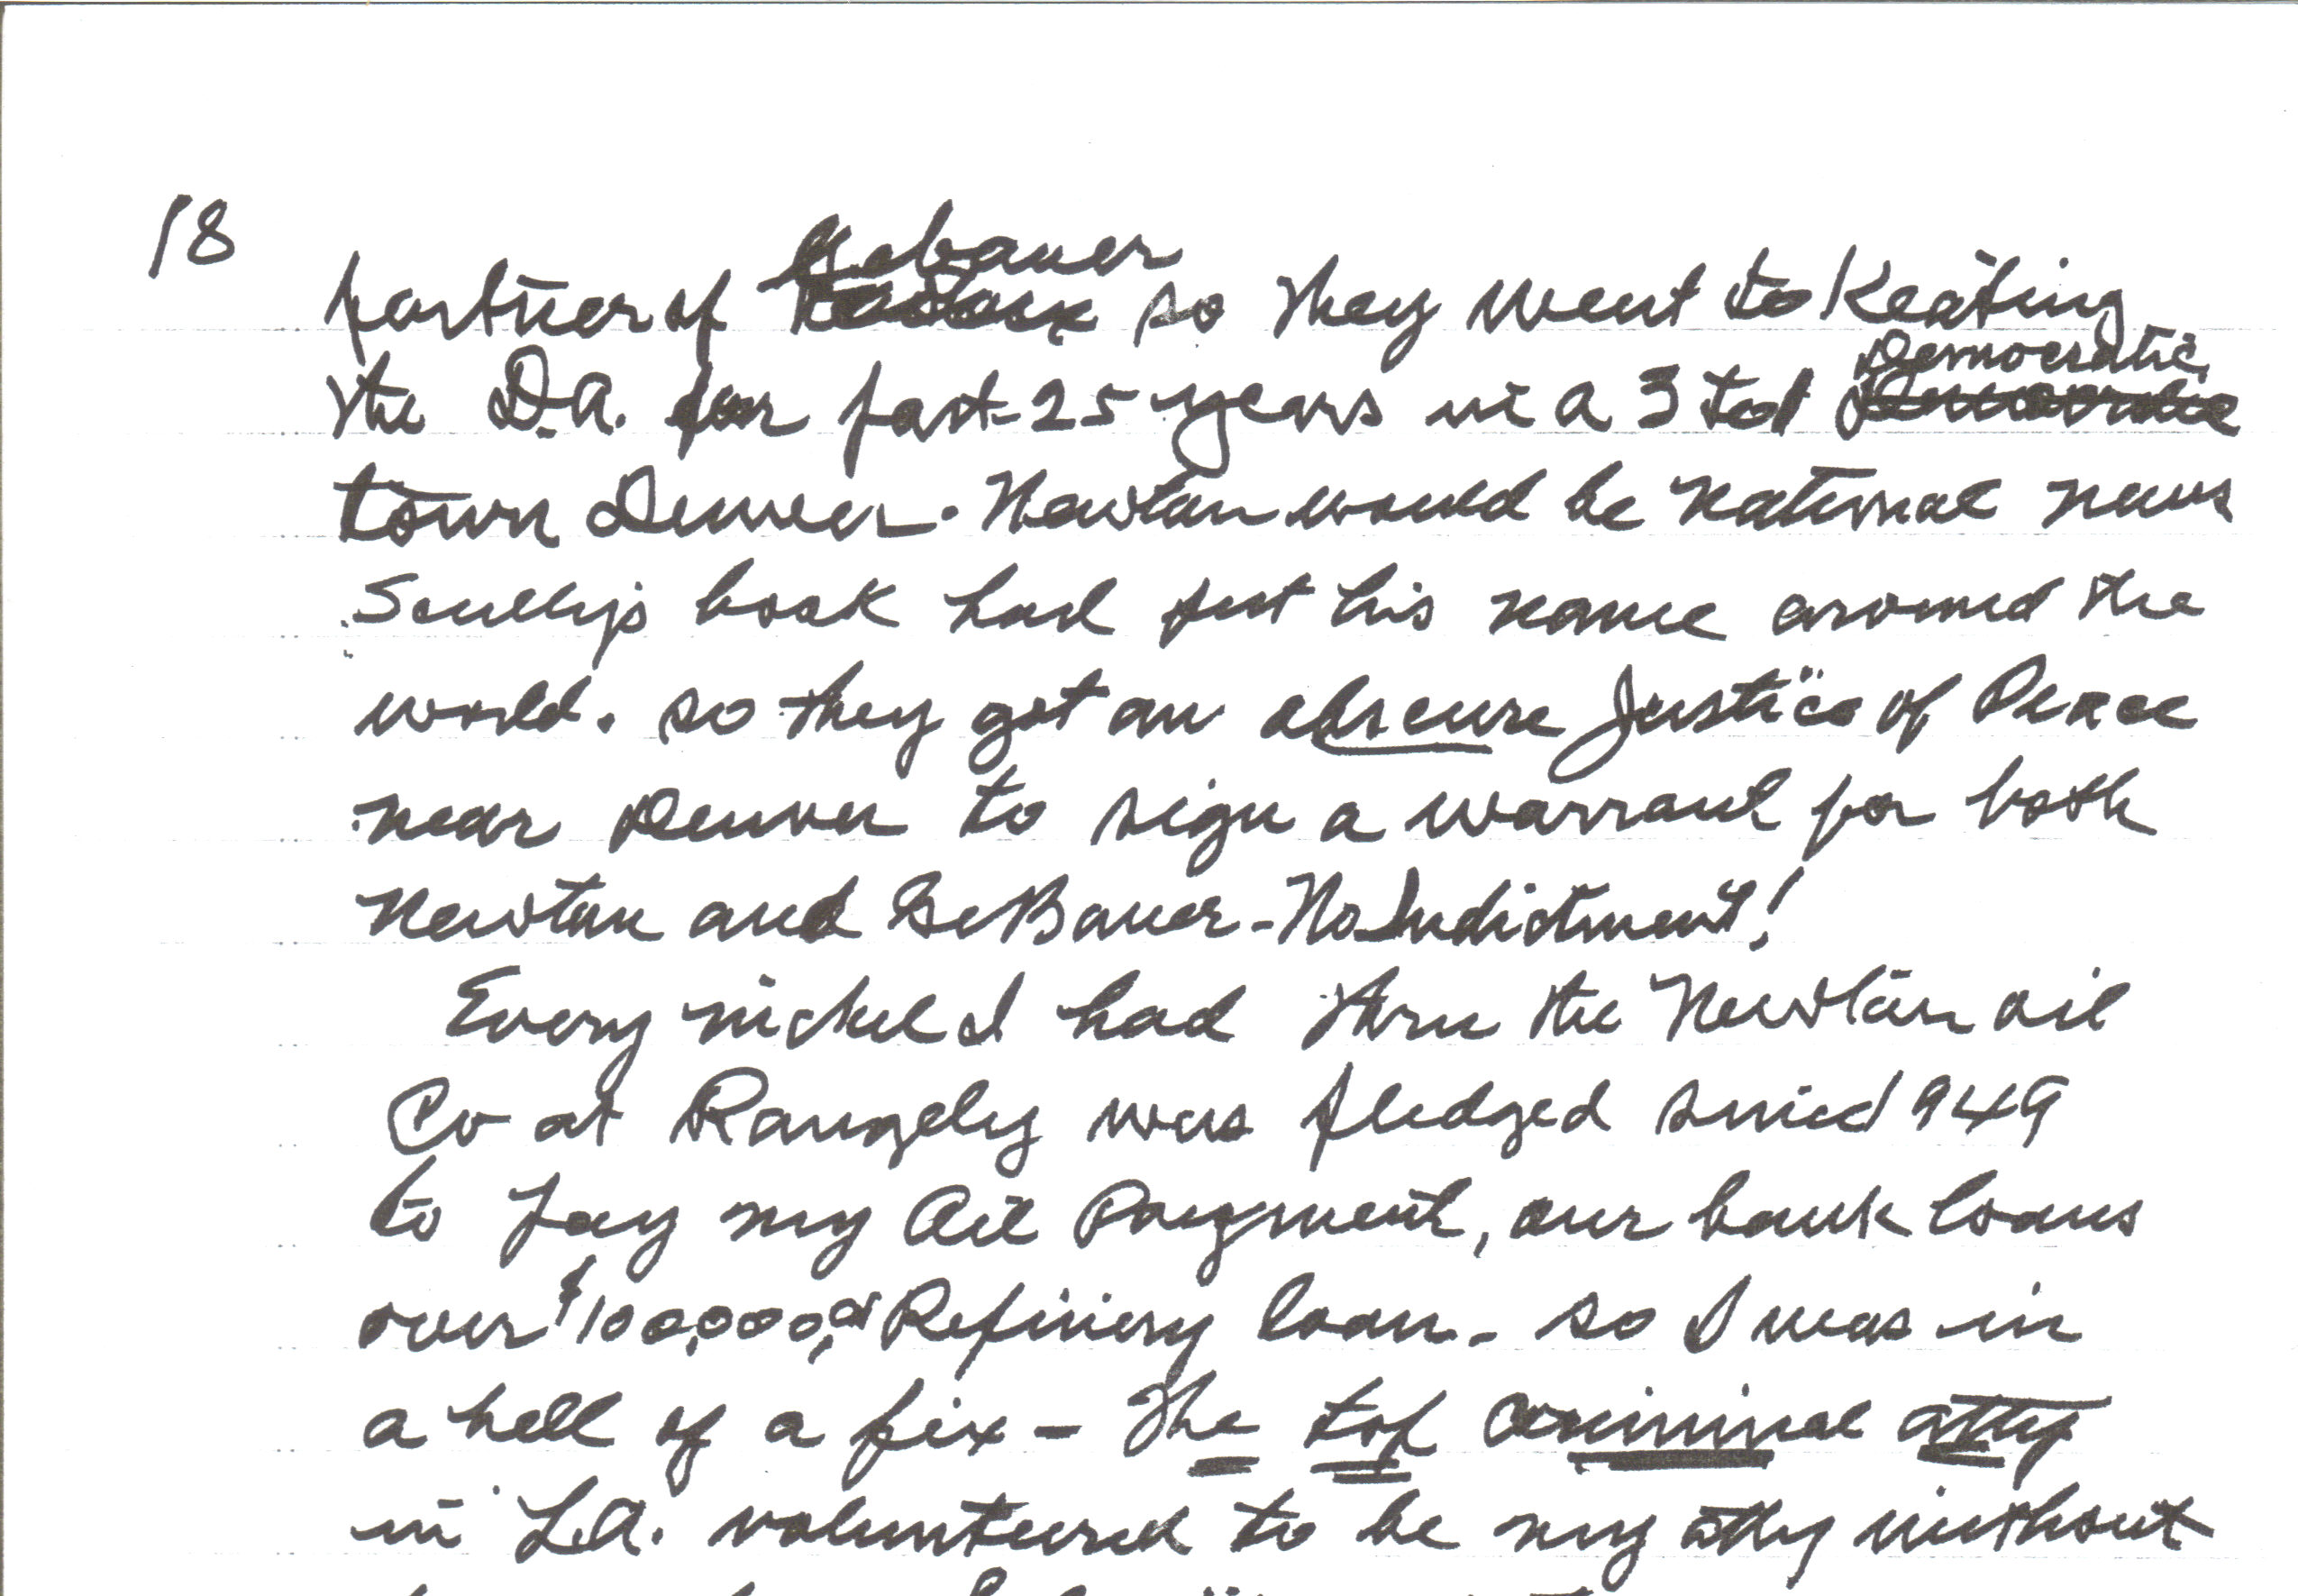 18
partner of Gebauer so they went to Keating
the D.A. for past 25 years in a 3 to 1 Democratic
town Denver. Newton would be national news
Scully's book had put his name around the
world. so they got an obscure Justice of Peace
near Denver to sign a warrant for both
Newton and GeBauer - No Indictment!
Every nickel I had thru the Newton oil
Co at Rangely was pledged since 1949
to pay my Oil Payment, our bank loans
over $100,000,00 Refinery loan - so I was in
a hell of a fix - The top criminal atty
in L.A. volunteered to be my atty without